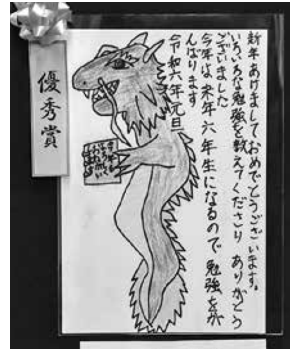 新年あけましておめでとうございます。
いろいろな勉強を教えてくださり ありがとう
ございました
今年は来年六年生になるので 勉強をが
んばります
令和六年元旦
優秀賞